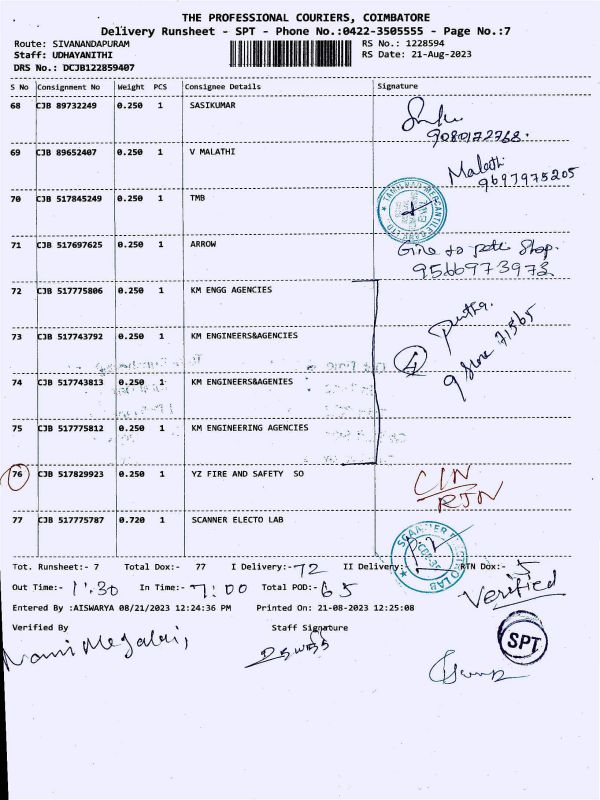 THE PROFESSIONAL COURIERS, COIMBATORE
Delivery Runsheet - SPT - Phone No.:0422-3505555 - Page No.:7
Route: SIVANANDAPURAM RS No.: 1228594
Staff: UDHAYANITHI RS Date: 21-Aug-2023
DRS No.: DCJB122859407
S No Consignment No Weight PCS Consignee Details Signature
68 CJB 89732249 0.250 1 SASIKUMAR
9080172768.
69 CJB 89652407 0.250 1 V MALATHI Malathi
9697975205
70 CJB 517845249 0.250 1 TMB
71 CJB 517697625 0.250 1 ARROW Give to pets shop.
9566973973
72 CJB 517775806 0.250 1 KM ENGG AGENCIES
73 CJB 517743792 0.250 1 KM ENGINEERS&AGENCIES
4
74 CJB 517743813 0.250 1 KM ENGINEERS&AGENIES
75 CJB 517775812 0.250 1 KM ENGINEERING AGENCIES
76 CJB 517829923 0.250 1 YZ FIRE AND SAFETY SO
RTN
77 CJB 517775787 0.720 1 SCANNER ELECTO LAB
Tot. Runsheet:- 7 Total Dox:- 77 I Delivery:- 72 II Delivery:- RTN Dox:- 5
Out Time:- 11.30 In Time:- 7:00 Total POD:- 65 Verified
Entered By :AISWARYA 08/21/2023 12:24:36 PM Printed On: 21-08-2023 12:25:08
Verified By Staff Signature
SPT